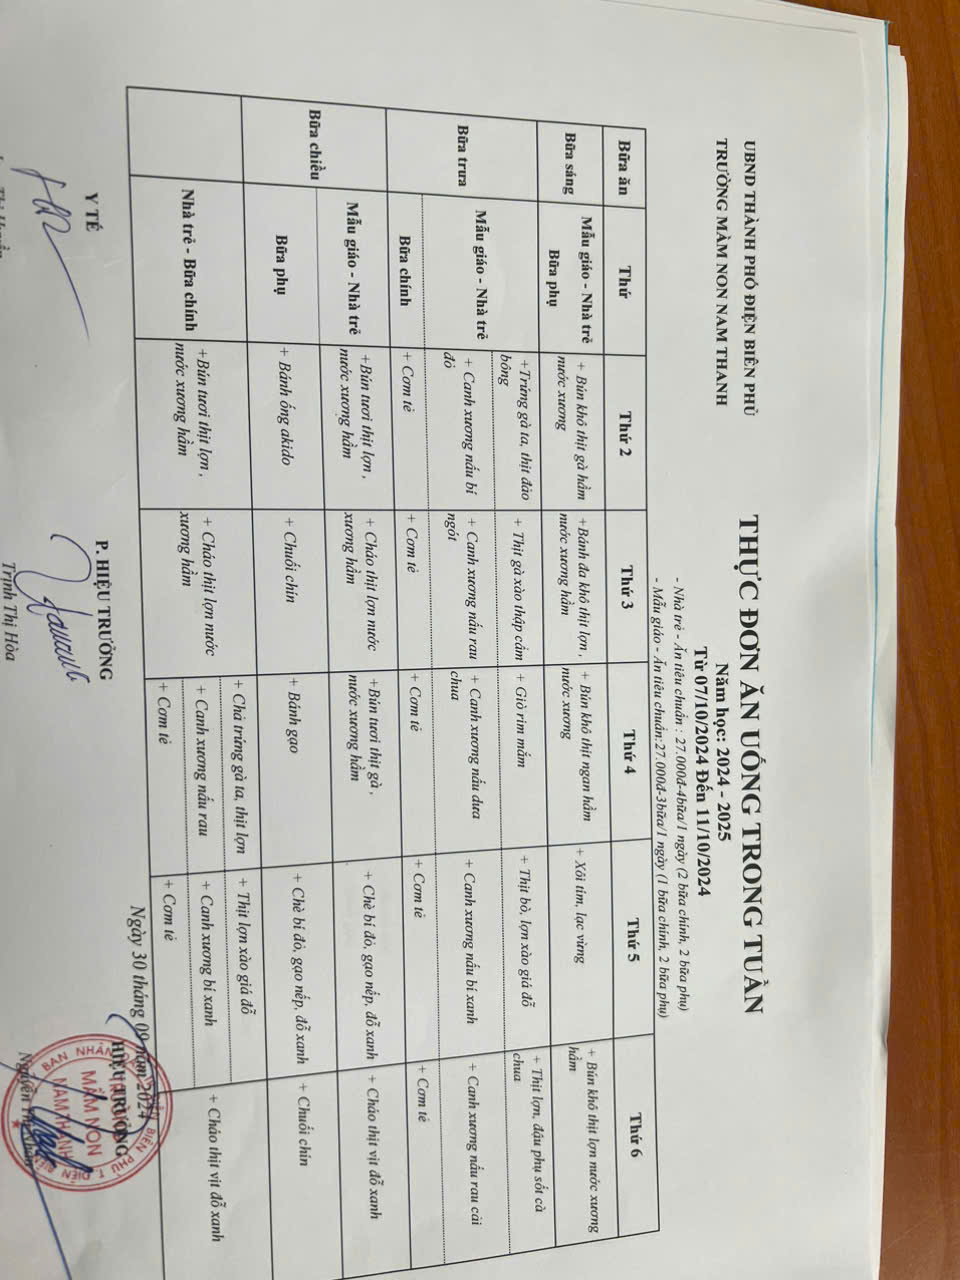 UBND THÀNH PHỐ ĐIỆN BIÊN PHỦ
TRƯỜNG MẦM NON NAM THANH
THỰC ĐƠN ĂN UỐNG TRONG TUẦN
Năm học: 2024 - 2025
Từ 07/10/2024 Đến 11/10/2024
- Nhà trẻ - Ăn tiêu chuẩn : 27.000đ-4bữa/1 ngày (2 bữa chính, 2 bữa phụ)
- Mẫu giáo - Ăn tiêu chuẩn:27.000đ-3bữa/1 ngày (1 bữa chính, 2 bữa phụ)
Bữa ăn
Thứ
Thứ 2
Thứ 3
Thứ 4
Thứ 5
Thứ 6
Bữa sáng
Mẫu giáo - Nhà trẻ
Bữa phụ
+ Bún khô thịt gà hầm
nước xương
+Bánh đa khô thịt lợn ,
nước xương hầm
+ Bún khô thịt ngan hầm
nước xương
+ Xôi tím, lạc vừng
+ Bún khô thịt lợn nước xương
hầm
Bữa trưa
Mẫu giáo - Nhà trẻ
Bữa chính
+Trứng gà ta, thịt đảo
bông
+ Thịt gà xào thập cẩm
+ Giò rim mắm
+ Thịt bò, lợn xào giá đỗ
+ Thịt lợn, đậu phụ sốt cà
chua
+ Canh xương nấu bí
đỏ
+ Canh xương nấu rau
ngót
+ Canh xương nấu dưa
chua
+ Canh xương nấu bí xanh
+ Canh xương nấu rau cải
+ Cơm tẻ
+ Cơm tẻ
+ Cơm tẻ
+ Cơm tẻ
+ Cơm tẻ
Bữa chiều
Mẫu giáo - Nhà trẻ
Bữa phụ
+Bún tươi thịt lợn ,
nước xương hầm
+ Cháo thịt lợn nước
xương hầm
+Bún tươi thịt gà ,
nước xương hầm
+ Chè bí đỏ, gạo nếp, đỗ xanh
+ Cháo thịt vịt đỗ xanh
+ Bánh ống akido
+ Chuối chín
+ Bánh gạo
+ Chè bí đỏ, gạo nếp, đỗ xanh
+ Chuối chín
Nhà trẻ - Bữa chính
+Bún tươi thịt lợn ,
nước xương hầm
+ Cháo thịt lợn nước
xương hầm
+ Chả trứng gà ta, thịt lợn
+ Canh xương nấu rau
+ Cơm tẻ
+ Thịt lợn xào giá đỗ
+ Canh xương bí xanh
+ Cơm tẻ
+ Cháo thịt vịt đỗ xanh
Ngày 30 tháng 09 năm 2024
Y TẾ
P. HIỆU TRƯỞNG
HIỆU TRƯỞNG
MẦM NON
NAM THANH
Trịnh Thị Hòa